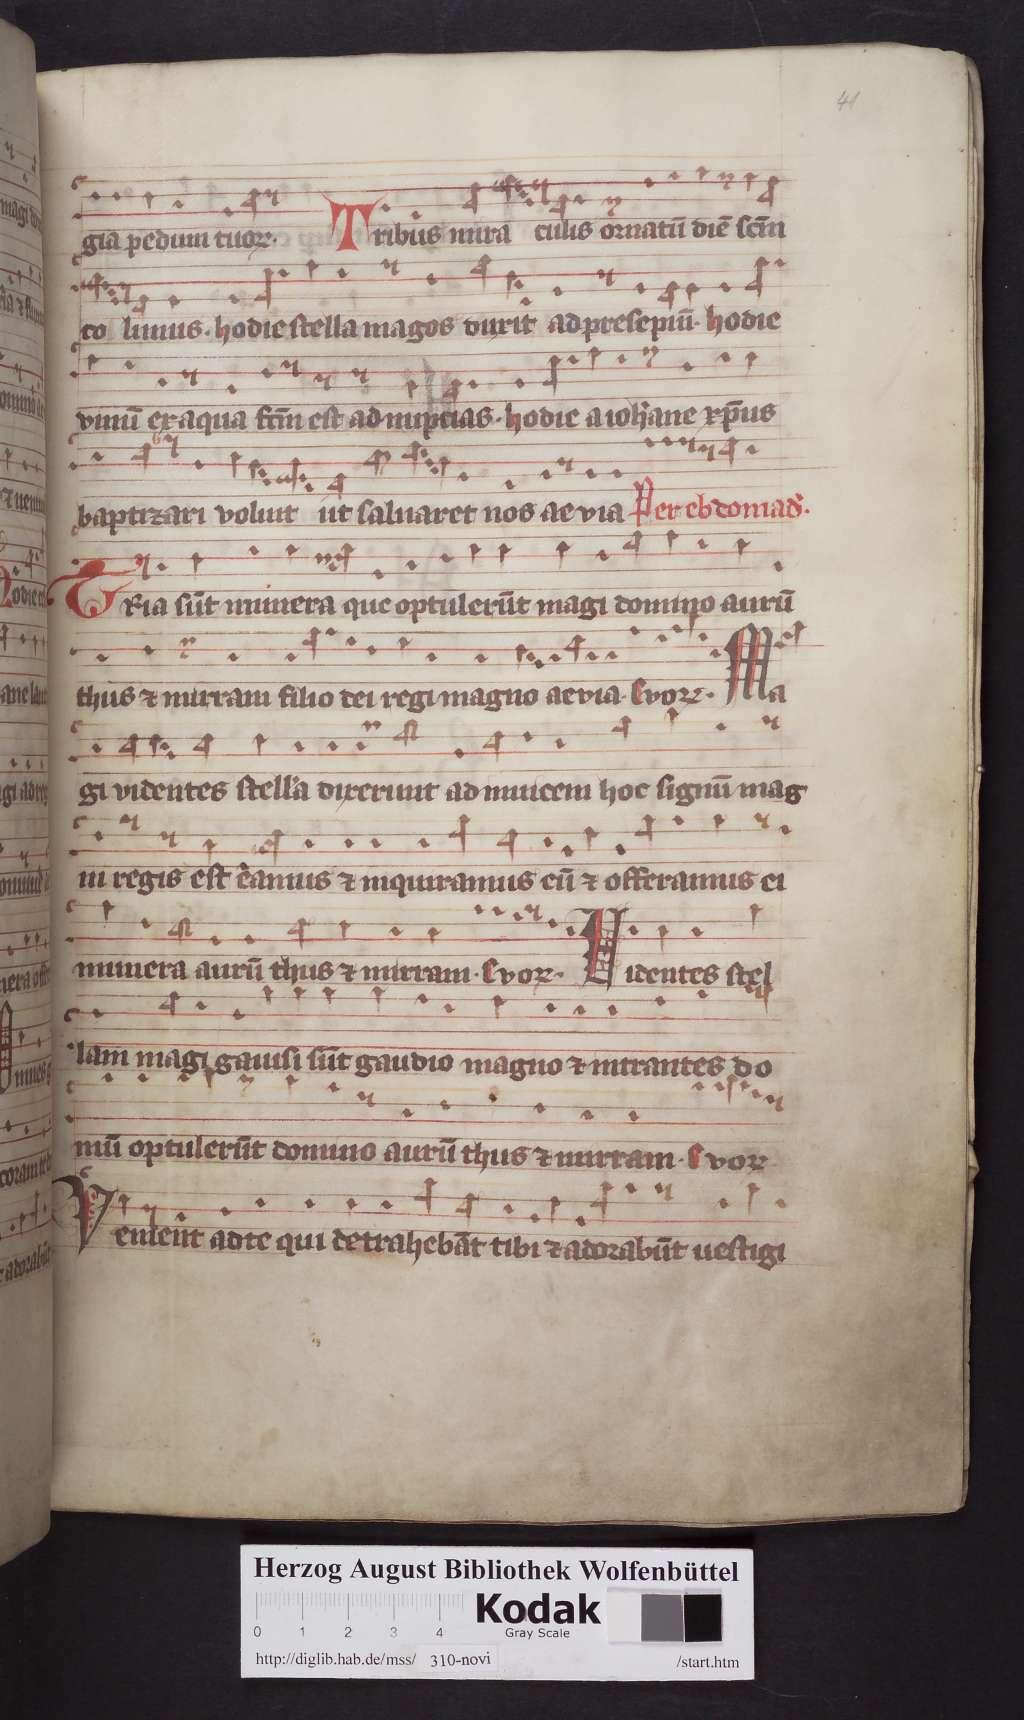 41
gia pedum tuoꝝ. Tribus mira culis ornatū diē scm̄
co limus. hodie stella magos duxit ad presepiū. hodie
vinū ex aqua fcm̄ est ad nuptias. hodie a iohāne xp̄us
baptizari voluit ut saluaret nos aevia Per ebdomad̄.
Tria sūt munera que optulerūt magi domino aurū
thus ⁊ mirram filio dei regi magno aevia. Evoꝝ. Ma
gi videntes stellā dixerunt ad inuicem hoc signū mag
ni regis est eamus ⁊ inquiramus eū ⁊ offeramus ei
munera aurū thus ⁊ mirram. Evoꝝ. Videntes stel
lam magi gauisi sūt gaudio magno ⁊ intrantes do
mū optulerūt domino aurū thus ⁊ mirram. Evoꝝ
Venient ad te qui detrahebāt tibi ⁊ adorabūt uestigi
Herzog August Bibliothek Wolfenbüttel
0 1 2 3 4
Kodak
Gray Scale
http://diglib.hab.de/mss/ 310-novi /start.htm